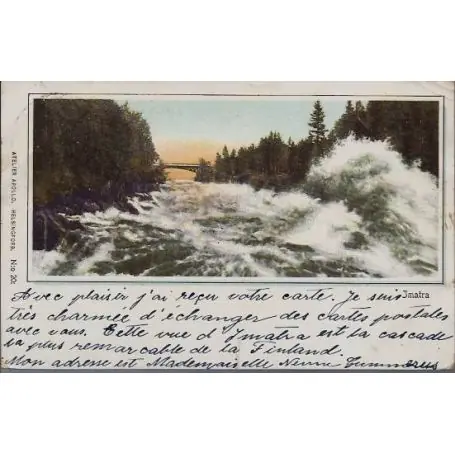 ATELIER APOLLO. HELSINGFORS. No 20.
Imatra
Avec plaisir j'ai reçu votre carte. Je suis
très charmée d'échanger des cartes postales
avec vous. Cette vue d'Imatra est la cascade
la plus remarcable de la Finland.
Mon adresse est Mademoiselle